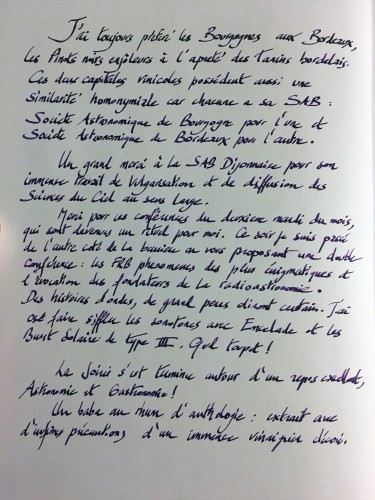 J'ai toujours préféré les Bourgognes aux Bordeaux,
les Pinots noirs enjôleurs à l'apreté des tanins bordelais.
Ces deux capitales vinicoles possèdent aussi une
similarité homonymiale car chacune a sa SAB :
Société Astronomique de Bourgogne pour l'une et
Société Astronomique de Bordeaux pour l'autre.
Un grand merci à la SAB Dijonnaise pour son
immense travail de vulgarisation et de diffusion des
Sciences du Ciel au sens large.
Merci pour ces conférences du deuxième mardi du mois,
qui sont devenues un rituel pour moi. Ce soir je suis passé
de l'autre coté de la barrière en vous proposant une double
conférence : les FRB phénomènes des plus énigmatiques et
l'évocation des fondateurs de la radioastronomie.
Des histoires d'ondes, de grand peres diront certains. J'ai
osé faire siffler les sonotones avec Encelade et les
Burst Solaire de type III. Quel toupet !
La soirée s'est terminée autour d'un repas excellent,
Astronomie et Gastronomie !
Un baba au rhum d'anthologie : extrait avec
d'infinies précautions d'un immense vinaigrier décoré.